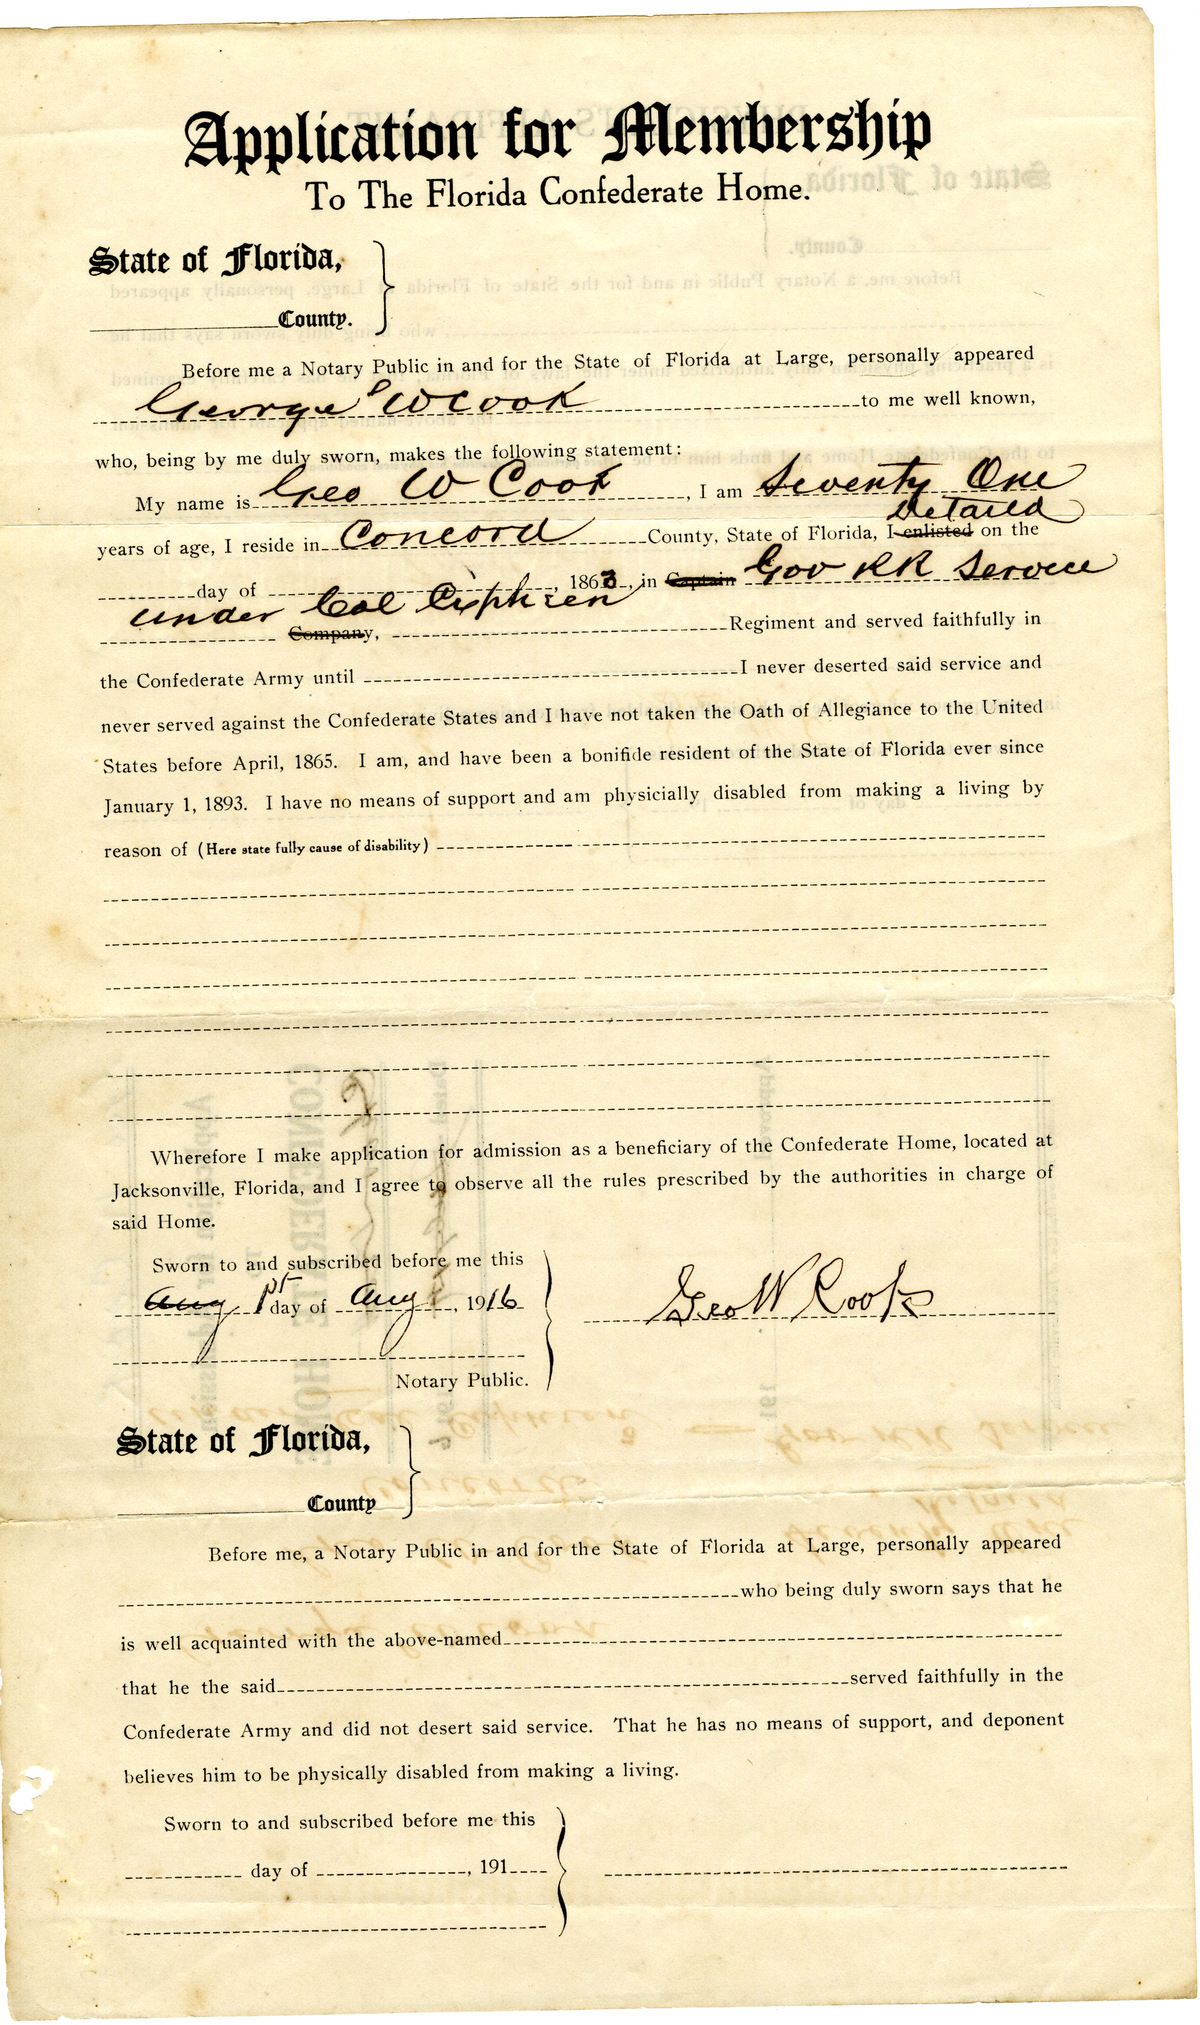 Application for Membership
To The Florida Confederate Home.
State of Florida,
County.
Before me a Notary Public in and for the State of Florida at Large, personally appeared
George W Cook to me well known,
who, being by me duly sworn, makes the following statement:
My name is Geo W Cook, I am Seventy One
Detaled
years of age, I reside in Concord County, State of Florida, I enlisted on the
day of , 1863, in Captain Gov RR Service
under Col
Company, Regiment and served faithfully in
the Confederate Army until I never deserted said service and
never served against the Confederate States and I have not taken the Oath of Allegiance to the United
States before April, 1865. I am, and have been a bonifide resident of the State of Florida ever since
January 1, 1893. I have no means of support and am physicially disabled from making a living by
reason of (Here state fully cause of disability)
Wherefore I make application for admission as a beneficiary of the Confederate Home, located at
Jacksonville, Florida, and I agree to observe all the rules prescribed by the authorities in charge of
said Home.
Sworn to and subscribed before me this
Aug 1st day of Aug, 1916
Geo W Cook
Notary Public.
State of Florida,
County
Before me, a Notary Public in and for the State of Florida at Large, personally appeared
who being duly sworn says that he
is well acquainted with the above-named
that he the said served faithfully in the
Confederate Army and did not desert said service. That he has no means of support, and deponent
believes him to be physically disabled from making a living.
Sworn to and subscribed before me this
day of , 191